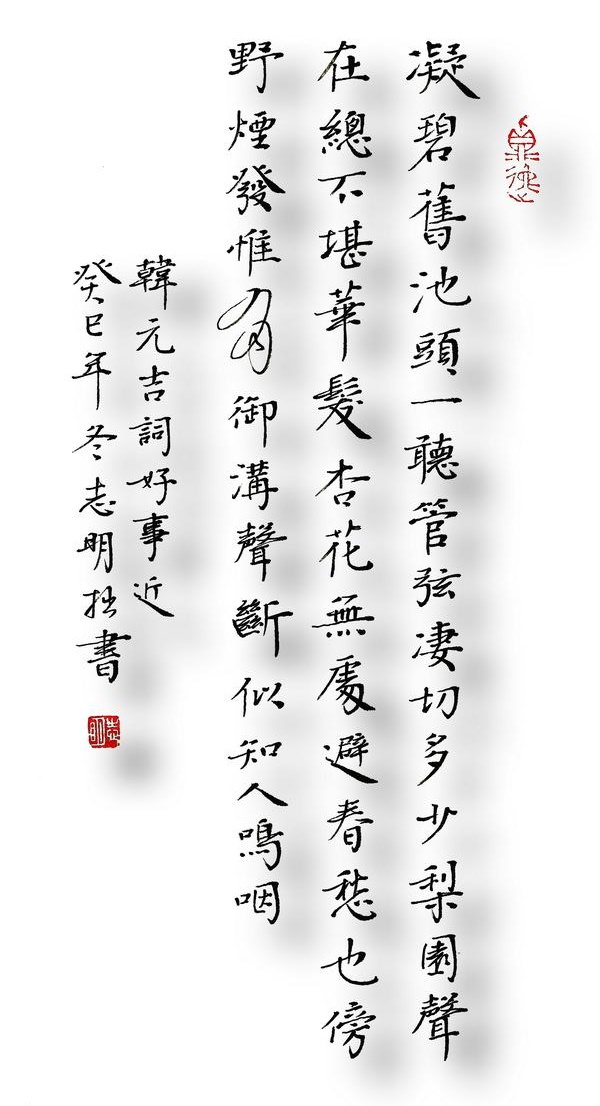 凝碧舊池頭一聽管弦淒切多少梨園聲
在總不堪華髮杏花無處避春愁也傍
野煙發惟有御溝聲斷似知人鳴咽
韓元吉詞好事近
癸巳年冬志明拙書